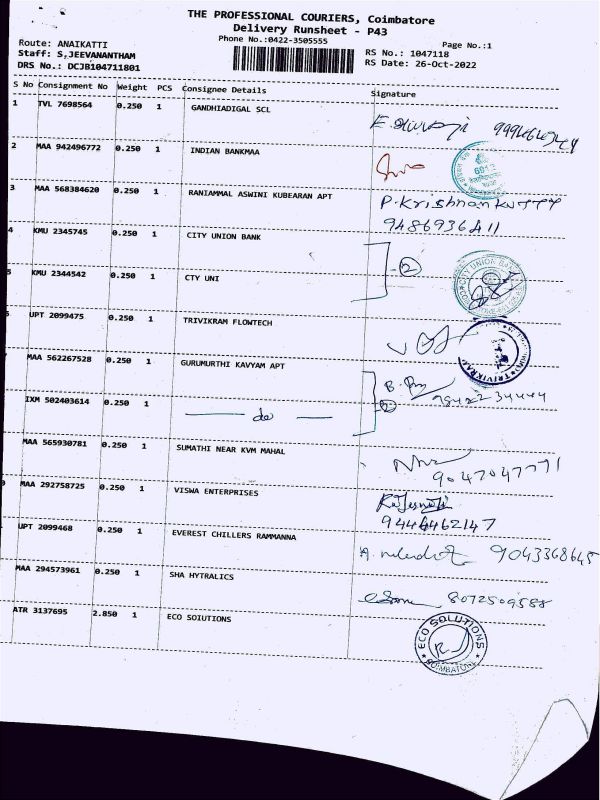 THE PROFESSIONAL COURIERS, Coimbatore
Delivery Runsheet - P43
Phone No.:0422-3505555
Page No.:1
Route: ANAIKATTI
RS No.: 1047118
Staff: S,JEEVANANTHAM
RS Date: 26-Oct-2022
DRS No.: DCJB104711801
S No Consignment No Weight PCS Consignee Details Signature
1 TVL 7698564 0.250 1 GANDHIADIGAL SCL
2 MAA 942496772 0.250 1 INDIAN BANKMAA
3 MAA 568384620 0.250 1 RANIAMMAL ASWINI KUBEARAN APT P.Krishnankutty
9486936411
4 KMU 2345745 0.250 1 CITY UNION BANK
2
CITY UNION BANK
5 KMU 2344542 0.250 1 CTY UNI
UPT 2099475 0.250 1 TRIVIKRAM FLOWTECH
MAA 562267528 0.250 1 GURUMURTHI KAVYAM APT
IXM 502403614 0.250 1 do
MAA 565930781 0.250 1 SUMATHI NEAR KVM MAHAL
9047047771
MAA 292758725 0.250 1 VISWA ENTERPRISES
9444462147
UPT 2099468 0.250 1 EVEREST CHILLERS RAMMANNA 9043368645
MAA 294573961 0.250 1 SHA HYTRALICS 8072509588
ATR 3137695 2.850 1 ECO SOIUTIONS
ECO SOLUTIONS
COIMBATORE